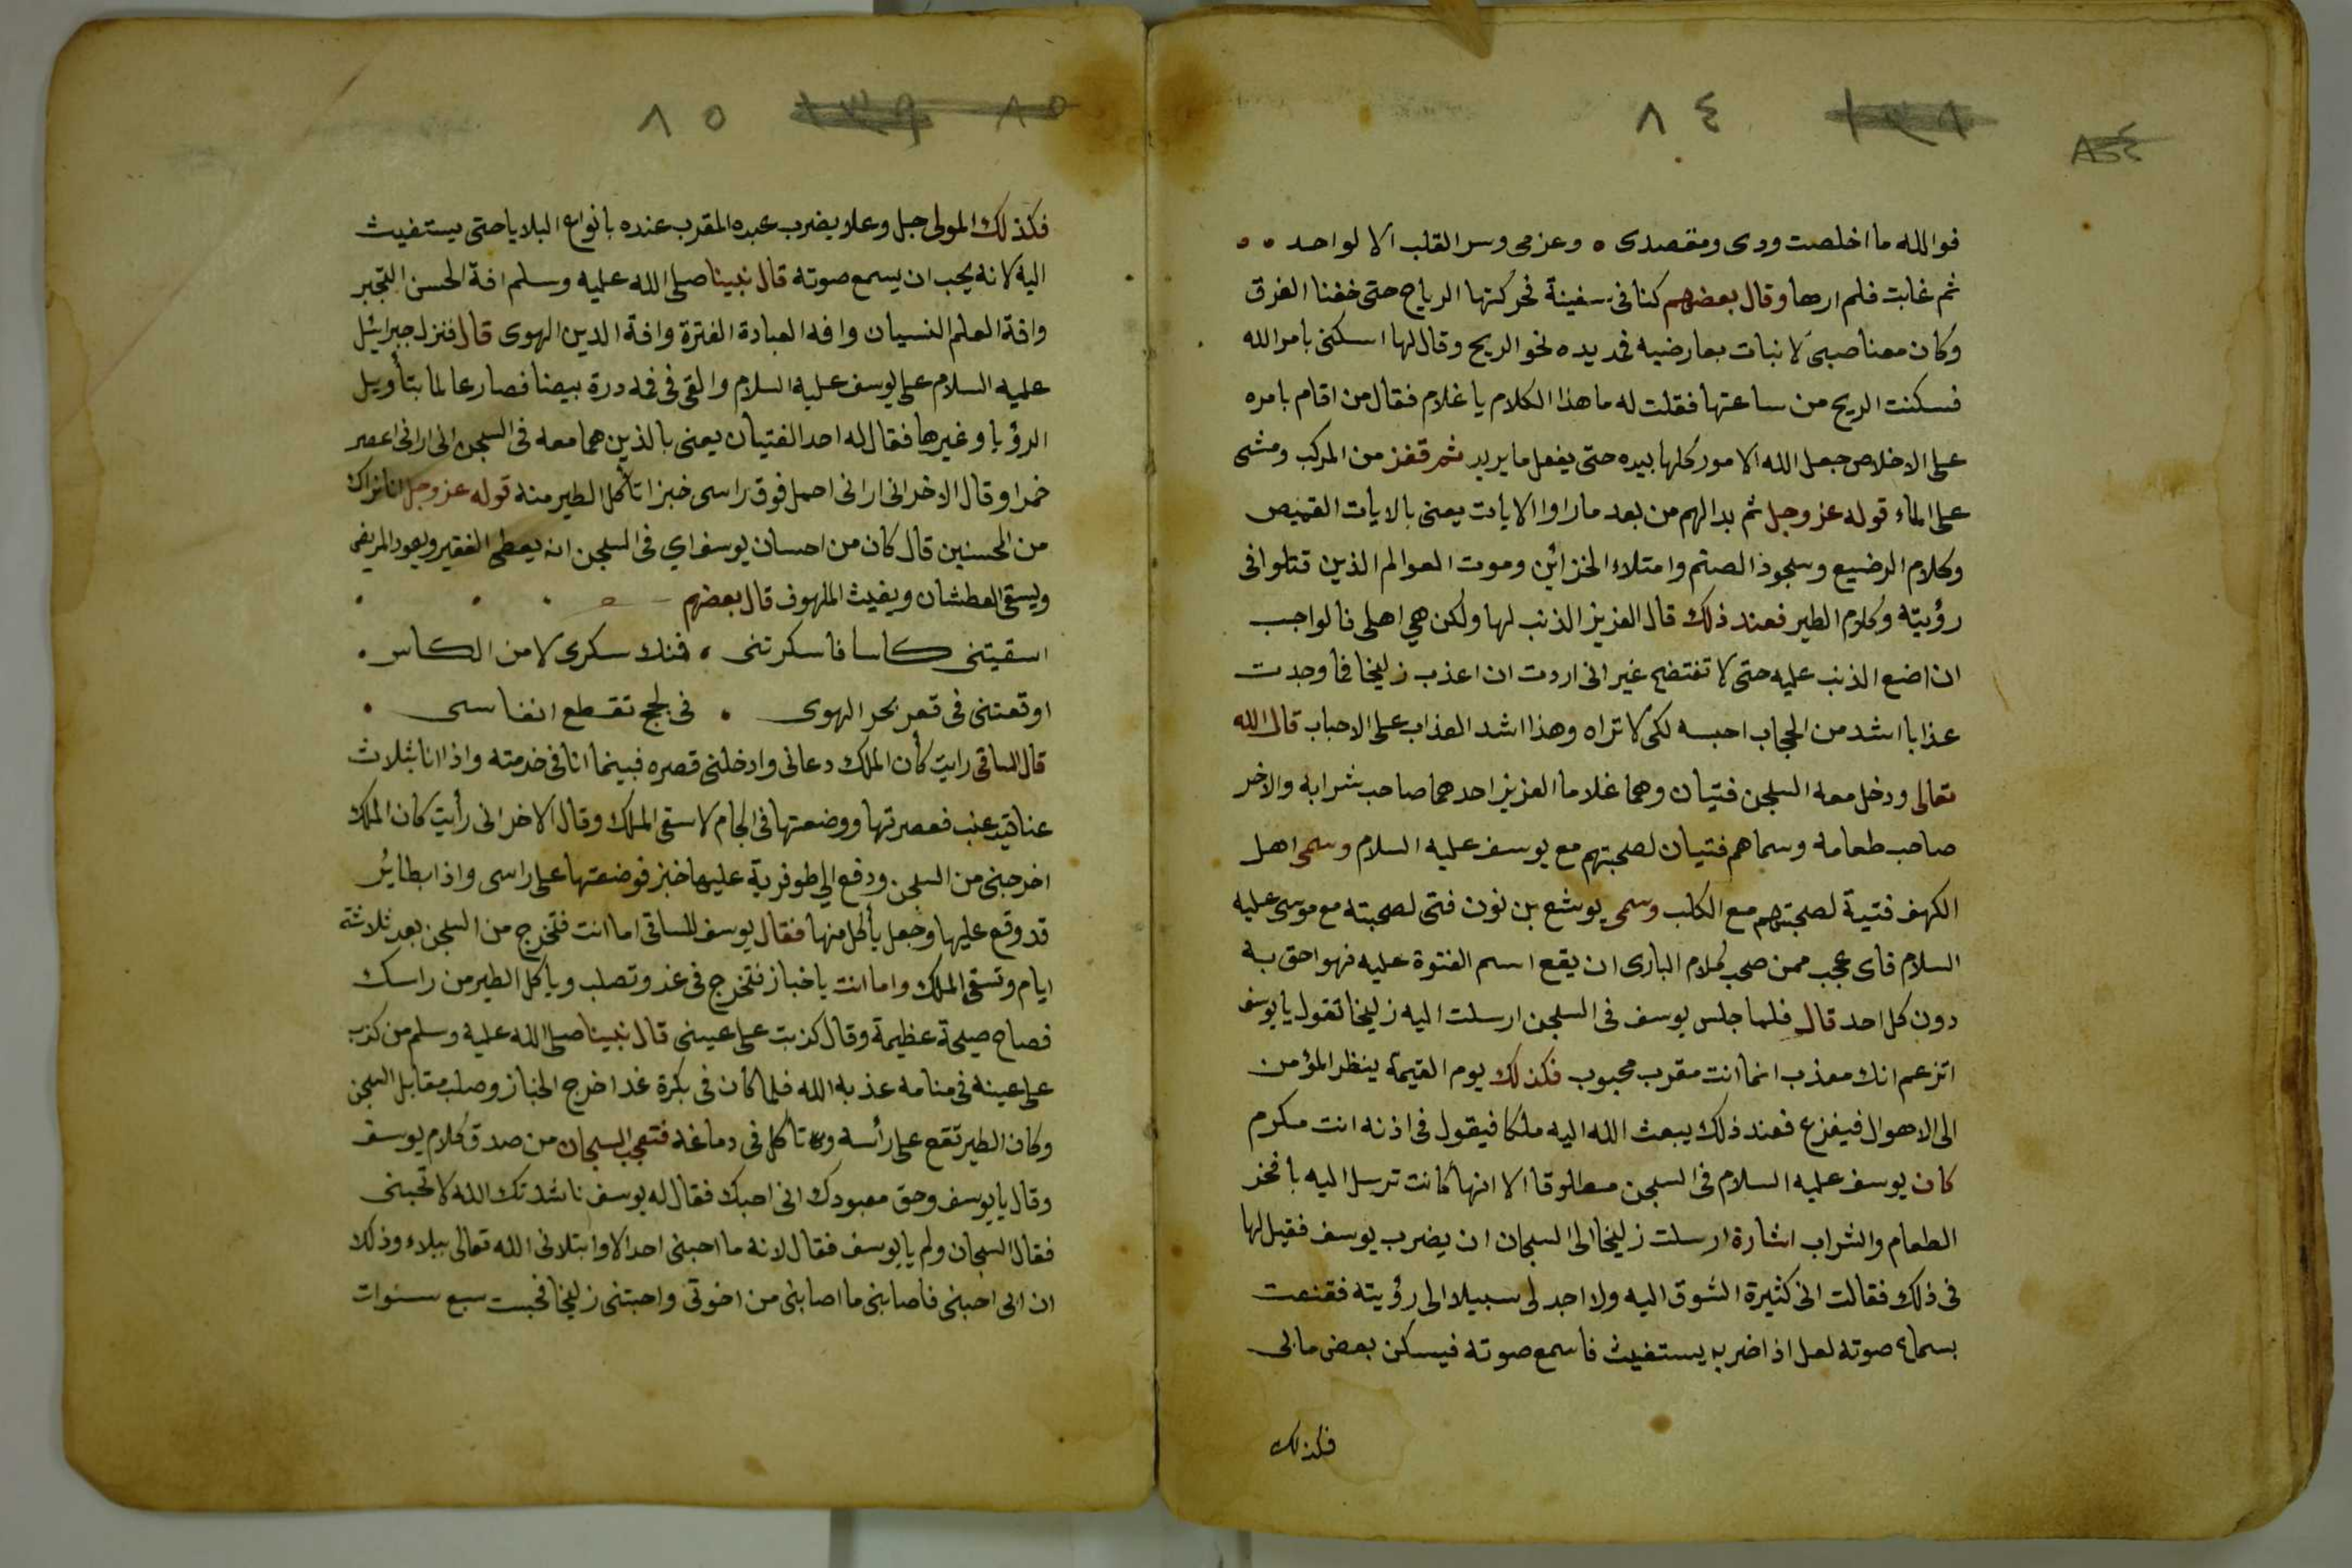 ٨٤
فوالله ما اخلصت ودى ومقصدى ٥ وعزمى وسر القلب الا لواحد ٥ ٥
ثم غابت فلم ارها وقال بعضهم كنا فى سفينة فحركتها الرياح حتى خفنا الغرق
وكان معنا صبى لا نبات بعارضيه فمد يده نحو الريح وقال لها اسكنى بامر الله
فسكنت الريح من ساعتها فقلت له ما هذا الكلام يا غلام فقال من اقام بامره
على الاخلاص جعل الله الامور كلها بيده حتى يفعل ما يريد ثم قفز من المركب ومشى
على الماء قوله عز وجل ثم بدا لهم من بعد ما راوا الايات يعنى بالايات القميص
وكلام الرضيع وسجود الصنم وامتلاء الخزائن وموت العوالم الذين قتلوا فى
رؤيته وكلام الطير فعند ذلك قال العزيز الذنب لها ولكن هى اهلى فالواجب
ان اضع الذنب عليه حتى لا تفتضح غير انى اردت ان اعذب زليخا فما وجدت
عذابا اشد من الحجاب احبسه لكى لا تراه وهذا اشد العذاب على الاحباب قال الله
تعالى ودخل معه السجن فتيان وهما غلاما العزيز احدهما صاحب شرابه والاخر
صاحب طعامه وسماهم فتيان لصحبتهم مع يوسف عليه السلام وسمى اهل
الكهف فتية لصحبتهم مع الكلب وسمى يوشع بن نون فتى لصحبته مع موسى عليه
السلام فاى عجب ممن صحب كلام البارى ان يقع اسم الفتوة عليه فهو احق به
دون كل احد قال فلما جلس يوسف فى السجن ارسلت اليه زليخا تقول يا يوسف
اتزعم انك معذب انما انت مقرب محبوب فكذلك يوم القيمة ينظر المؤمن
الى الاهوال فيفزع فعند ذلك يبعث الله اليه ملكا فيقول فى اذنه انت مكرم
كان يوسف عليه السلام فى السجن مطلوقا الا انها كانت ترسل اليه بافخر
الطعام والشراب اشارة ارسلت زليخا الى السجان ان يضرب يوسف فقيل لها
فى ذلك فقالت انى كثيرة الشوق اليه ولا اجد لى سبيلا الى رؤيته فقنعت
بسماع صوته لعل اذا ضربه يستغيث فاسمع صوته فيسكن بعض ما بى
فكذلك
٨٥
فكذلك المولى جل وعلا يضرب عبده المقرب عنده بانواع البلايا حتى يستغيث
اليه لانه يحب ان يسمع صوته قال نبينا صلى الله عليه وسلم افة الحسن التجبر
وافة العلم النسيان وافه العبادة الفترة وافة الدين الهوى قال فنزل جبرائيل
عليه السلام على يوسف عليه السلام والقى فى فمه درة بيضا فصار عالما بتأويل
الرؤيا وغيرها فقال له احد الفتيان يعنى بالذين هما معه فى السجن انى ارانى اعصر
خمرا وقال الاخر انى ارانى احمل فوق راسى خبزا تأكل الطير منه قوله عز وجل انا نراك
من المحسنين قال كان من احسان يوسف اي فى السجن انه يعطى الفقير ويعود المريض
ويسقى العطشان ويغيث الملهوف قال بعضهم
اسقيتنى كاسا فاسكرتنى ، فمنك سكرى لا من الكاس .
اوقعتنى فى قعر بحر الهوى . فى لجج تقطع انفاسى .
قال الساقى رايت كأن الملك دعانى وادخلنى قصره فبينما انا فى خدمته واذا انا بثلاث
عناقيد عنب فعصرتها ووضعتها فى الجام لاسقى الملك وقال الاخر انى رأيت كان الملك
اخرجنى من السجن ودفع الي طوفرية عليها خبز فوضعتها على راسى واذا بطائر
قد وقع عليها وجعل يأكل منها فقال يوسف للساقى اما انت فتخرج من السجن بعد ثلاثة
ايام وتسقى الملك واما انت يا خباز فتخرج فى غد وتصلب وياكل الطير من راسك
فصاح صيحة عظيمة وقال كذبت على عينى قال نبينا صلى الله عليه وسلم من كذب
على عينه فى منامه عذبه الله فلما كان فى بكرة غد اخرج الخباز وصلب مقابل السجن
وكان الطير تقع على رأسه وتاكل فى دماغه فتعجب السجان من صدق كلام يوسف
وقال يا يوسف وحق معبودك انى احبك فقال له يوسف ناشدتك الله لا تحبنى
فقال السجان ولم يا يوسف فقال لانه ما احبنى احد الا وابتلانى الله تعالى ببلاء وذلك
ان ابى احبنى فاصابنى ما اصابنى من اخوتى واحبتنى زليخا فحبست سبع سنوات